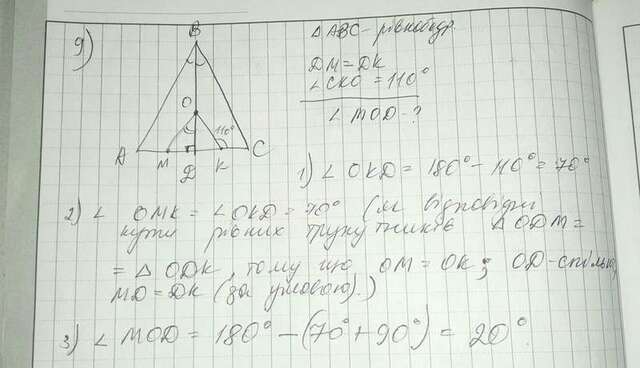 9)
B
O
110°
A M D K C
△ABC - рівнобедр.
DM = DK
∠CKO = 110°
∠MOD - ?
1) ∠OKD = 180° - 110° = 70°
2) ∠ OMK = ∠OKD = 70° (як відповідні
кути рівних трикутників △ODM =
= △ODK, тому що OM = OK; OD - спільна,
MD = DK (за умовою).)
3) ∠MOD = 180° - (70° + 90°) = 20°.